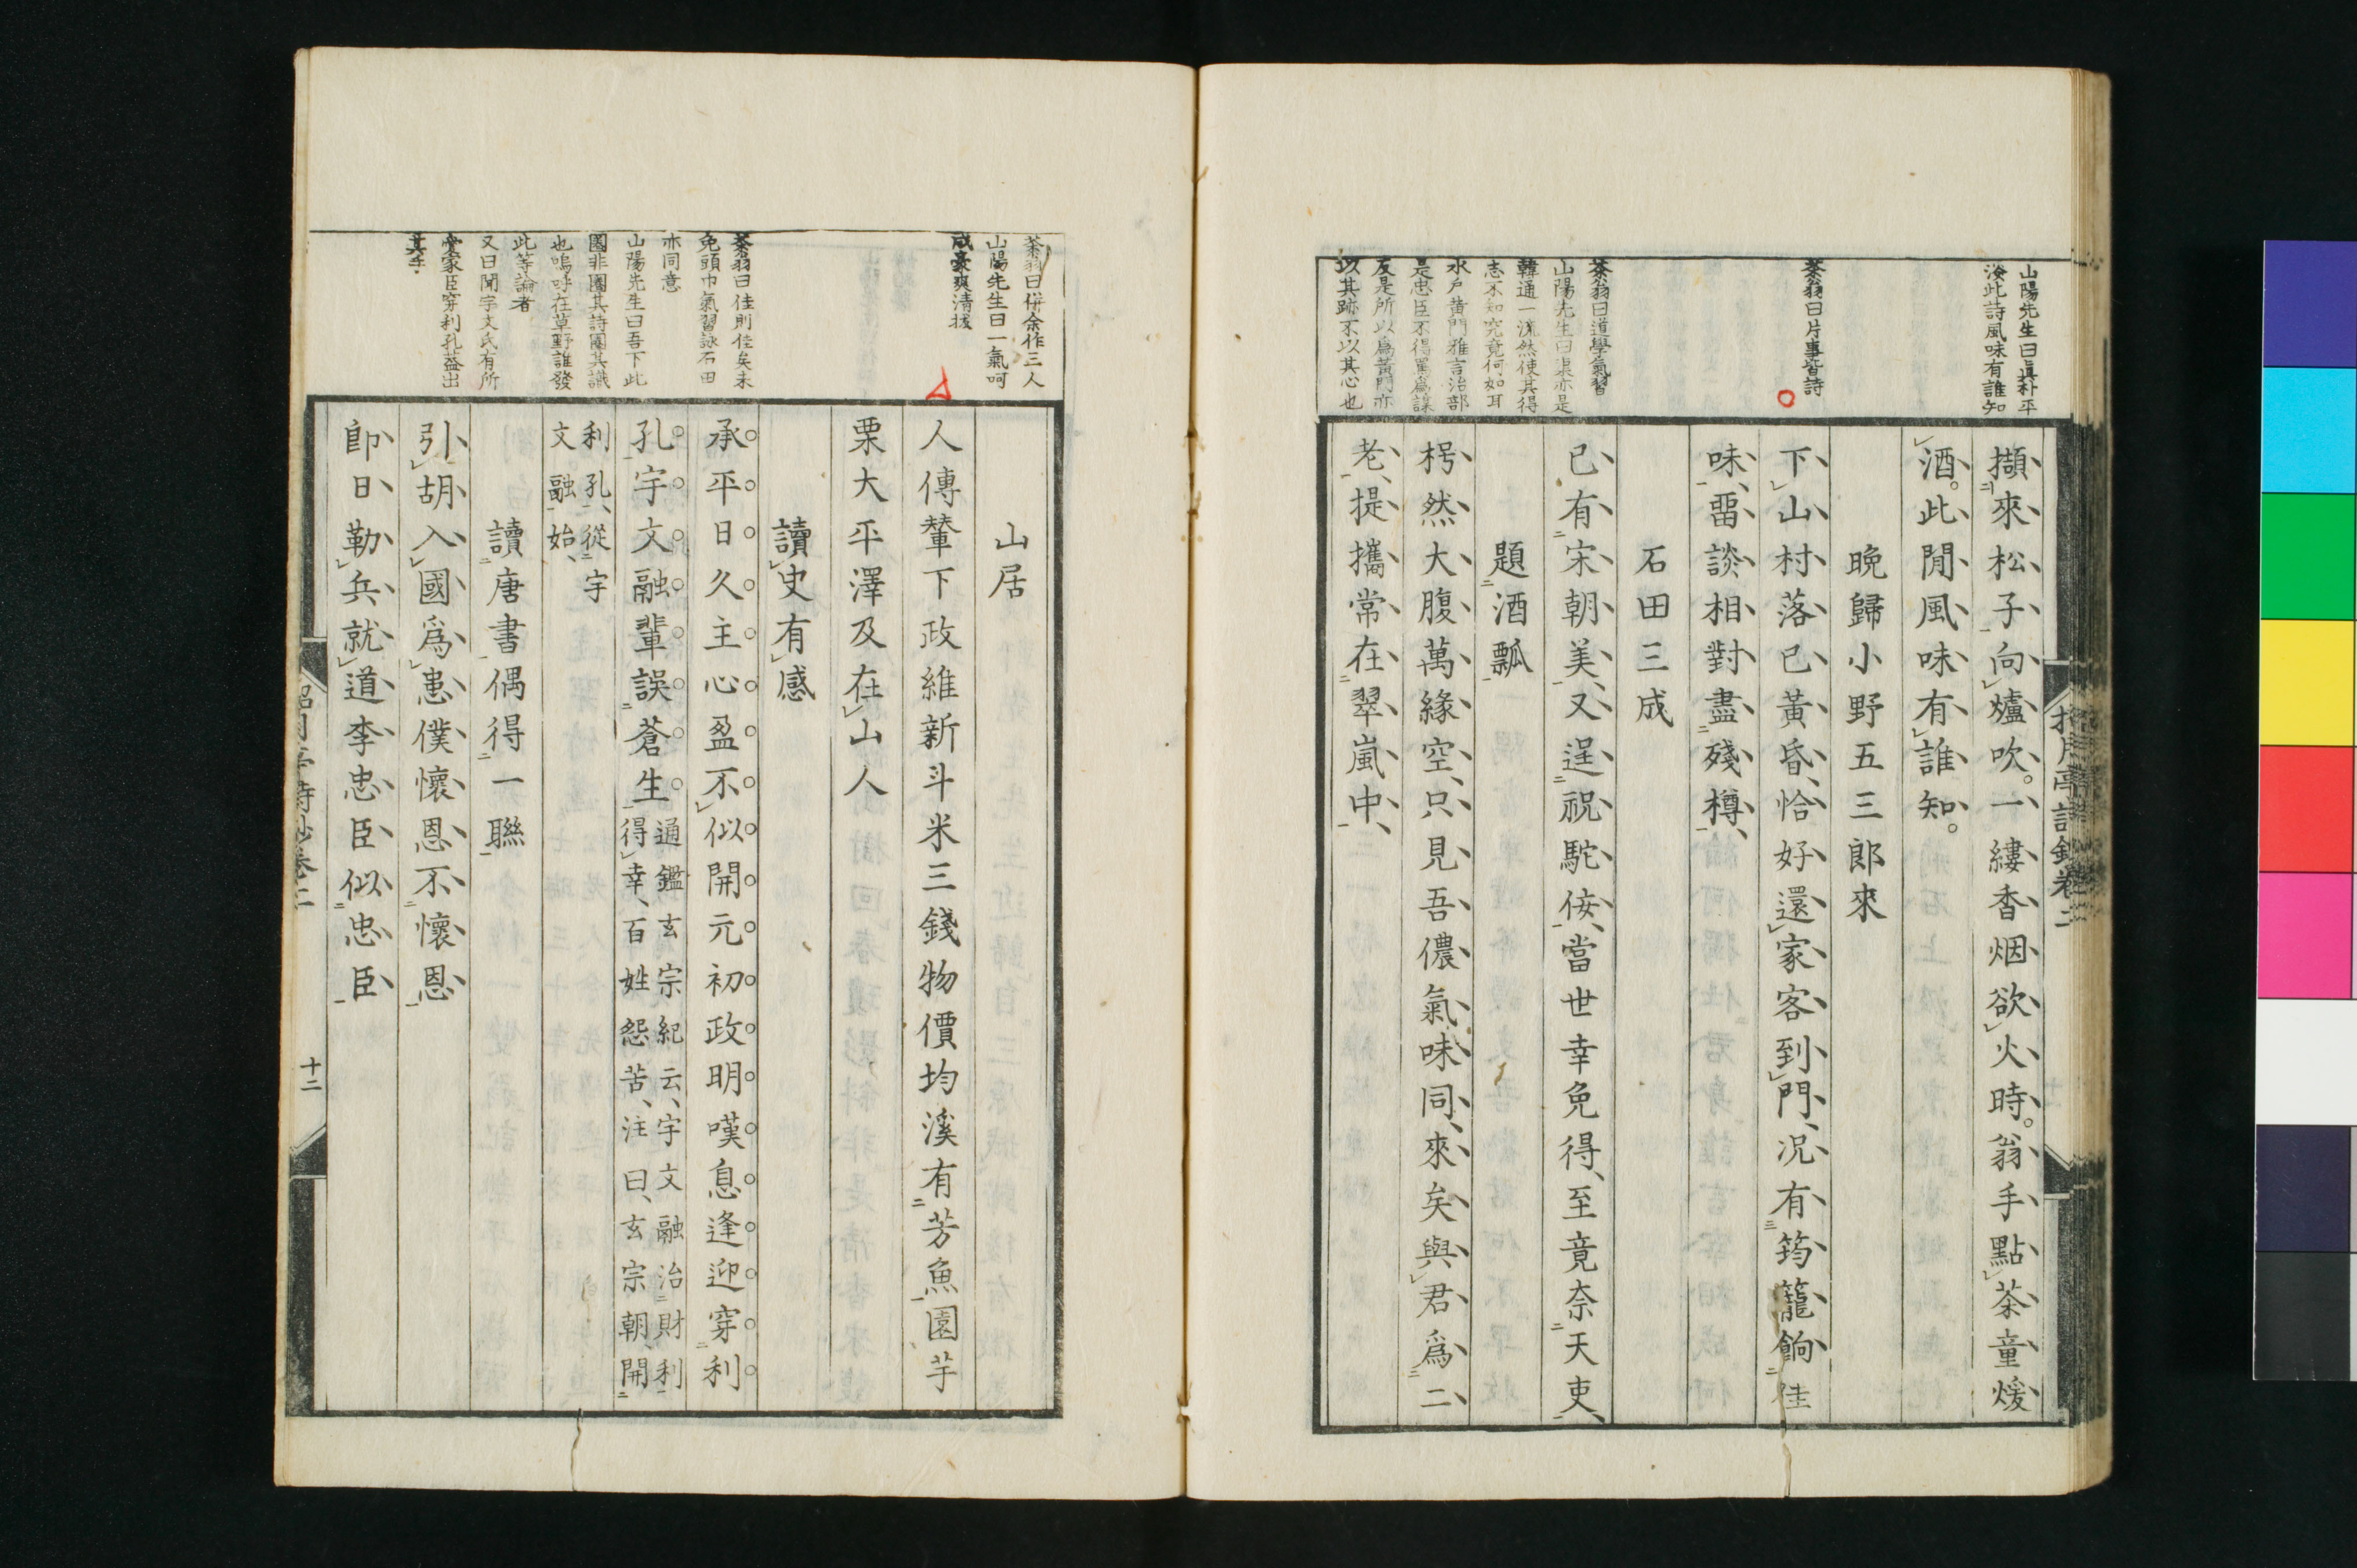 山陽先生曰眞朴平
淡此詩風味有誰知
茶翁曰片事皆詩
茶翁曰道學氣習
山陽先生曰表亦是
韓通一流然使其得
志不知究竟何如耳
水戶黄門雅言治部
是忠臣不得罵爲謀
反是所以爲黄門亦
以其跡不以其心也
擷來松子向爐吹。一縷香烟欲火時。翁手點茶童煖
酒。此閒風味有誰知。
晩歸小野五三郎來
下山村落已黃昏、恰好還家客到門、況有筠籠餉佳
味、畱談相對盡殘樽、
石田三成
已有宋朝美、又逞祝駝佞、當世幸免得、至竟奈天吏、
題酒瓢
枵然大腹萬緣空、只見吾儂氣味同、來矣與君爲二
老、提攜常在翠嵐中、
茶翁曰併余作三人
山陽先生曰一氣呵
成豪爽清拔
茶翁曰佳則佳矣未
免頭巾氣習詠石田
亦同意
山陽先生曰吾下此
圈非圈其詩圈其識
也嗚呼在草野誰發
此等論者
又曰聞宇文氏有所
愛家臣穿利孔蓋出
其手
山居
人傳輦下政維新斗米三錢物價均溪有芳魚園芋
栗大平澤及在山人
讀史有感
承平日久主心盈不似開元初政明嘆息逢迎穿利
孔宇文融輩誤蒼生
通鑑玄宗紀云、宇文融治財利
得幸、百姓怨苦、注曰、玄宗朝、開
利孔、從宇
文融始、
讀唐書偶得一聯
引胡入國爲患僕懷恩不懷恩
卽日勒兵就道李忠臣似忠臣
十二